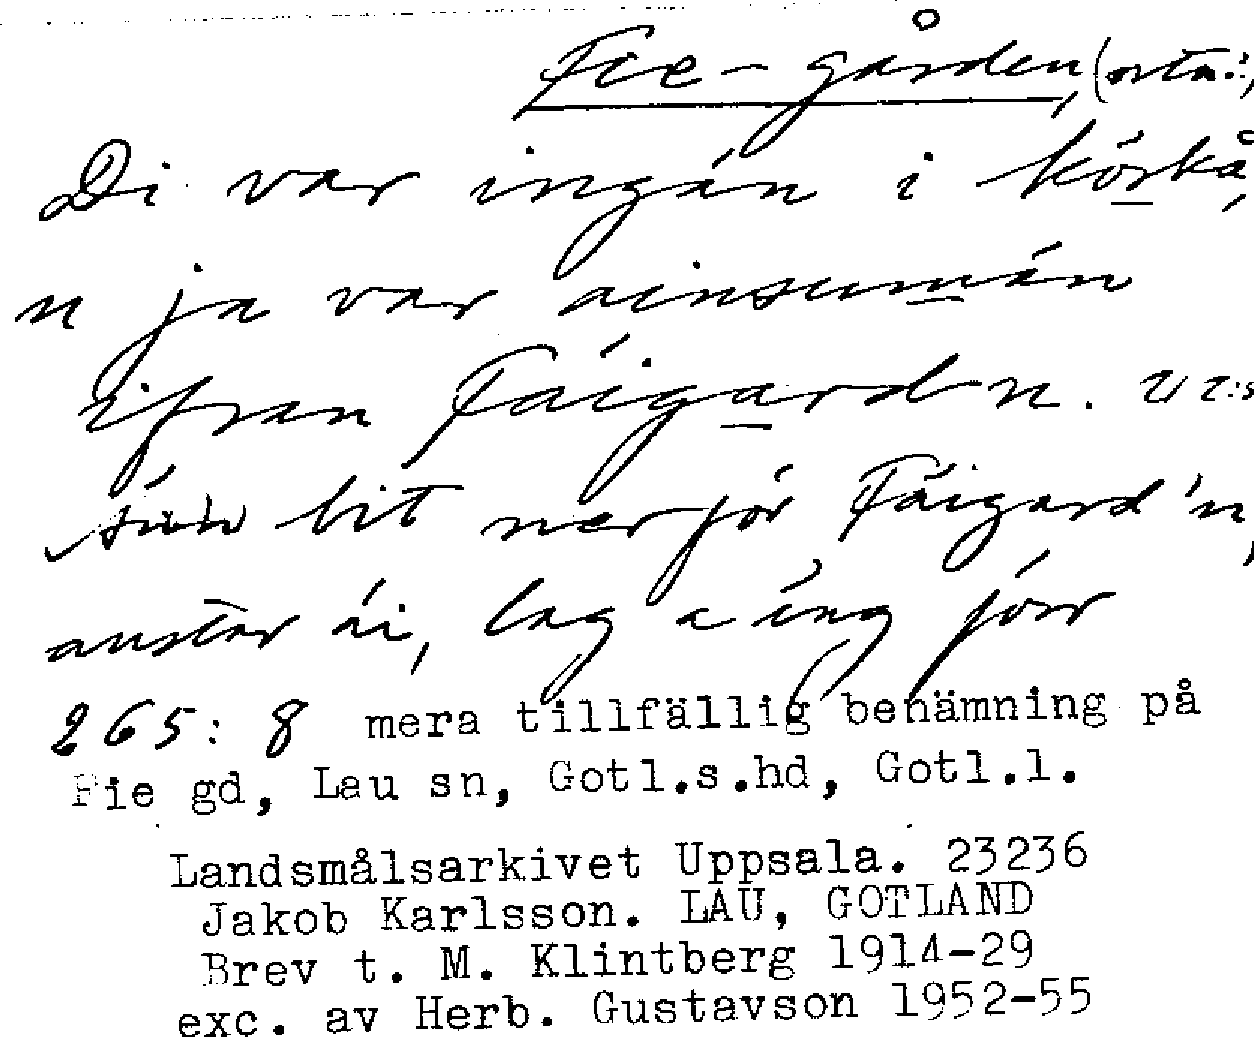 Fie-gården, (ortn.:,
Di var ingán i körkå,
u ja var ainsumán
ifran Fáigardn. VI:s
bit nerför Fáigard'n,
austar ái, lag a áng förr
265:8 mera tillfällig benämning på
Fie gd, Lau sn, Gotl.s.hd, Gotl.l.
Landsmålsarkivet Uppsala. 23236
Jakob Karlsson. LAU, GOTLAND
Brev t. M. Klintberg 1914-29
exc. av Herb. Gustavson 1952-55